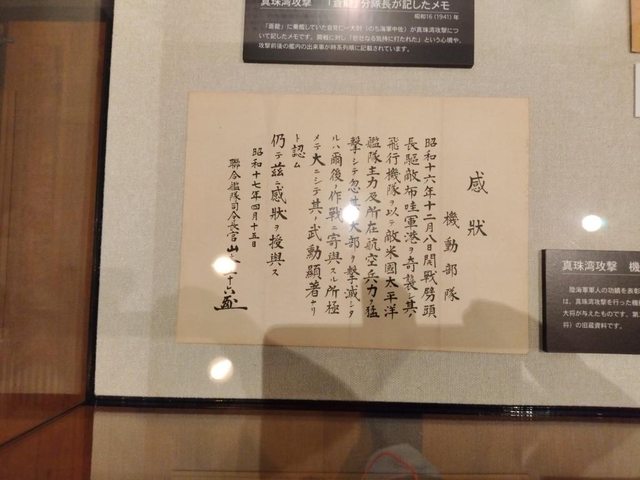 真珠湾攻撃 「蒼龍」分隊長が記したメモ
昭和16(1941)年
について記したメモです。開戦に対し「悲壮なる気持に打たれた」という心境や、
攻撃前後の艦内の出来事が時系列順に記載されています。
感狀
機動部隊
昭和十六年十二月八日開戰劈頭
長驅敵布哇軍港ヲ奇襲シ其
飛行機隊ヲ以テ敵米國太平洋
艦隊主力及所在航空兵力ヲ猛
擊シテ忽其ノ大部ヲ擊滅シタ
ルハ爾後ノ作戰ニ寄與スル所極
メテ大ニシテ其ノ武勳顯著ナリ
ト認ム
仍テ茲ニ感狀ヲ授與ス
昭和十七年四月十五日
聯合艦隊司令長官山本五十六
真珠湾攻撃 機
陸海軍軍人の功績を表彰
は、真珠湾攻撃を行った機
大将が与えたものです。第
将)の旧蔵資料です。